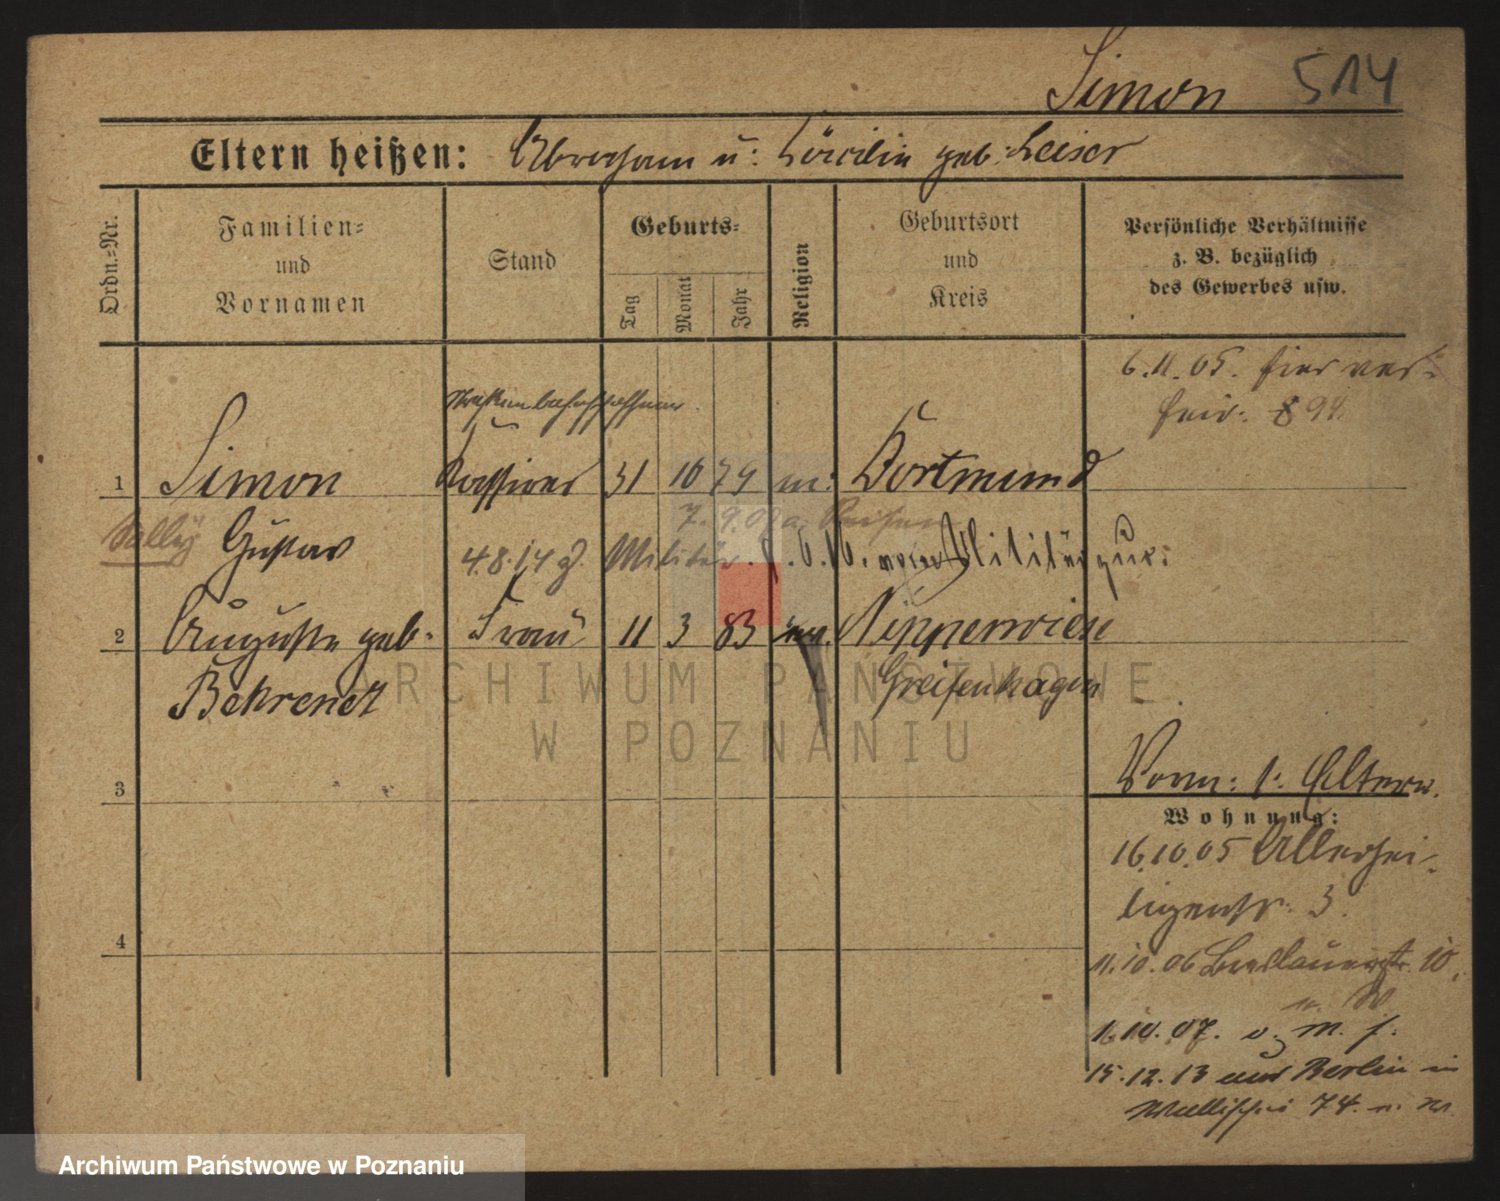 Simon 514
Eltern heißen: Abraham u: Cäcilie geb. Leiser
Ordn.=Nr.
Familien=
und
Vornamen
Stand
Geburts=
Tag
Monat
Jahr
Religion
Geburtsort
und
Kreis
Persönliche Verhältnisse
z. B. bezüglich
des Gewerbes usw.
6.11.05. hier ver=
heir: 894.
1 Simon Kassirer 31 10 79 m: Dortmund
7. 9.08 a. Reisen
Sally Gustav 4.8.14 z. Militär. Militär zur:
2 Auguste geb. Frau 11 3 83 Nipperwiese
Behrendt Greifenhagen
ARCHIWUM PAŃSTWOWE
W POZNANIU
3
Vorm: s: Eltern.
Wohnung:
16.10.05 Allerhei-
ligenstr. 3.
4
11.10.06 Breslauerstr. 10,
n. W
1.10.07. v. m. f.
15.12.13 aus Berlin in
Wallischei 74. n. W
Archiwum Państwowe w Poznaniu